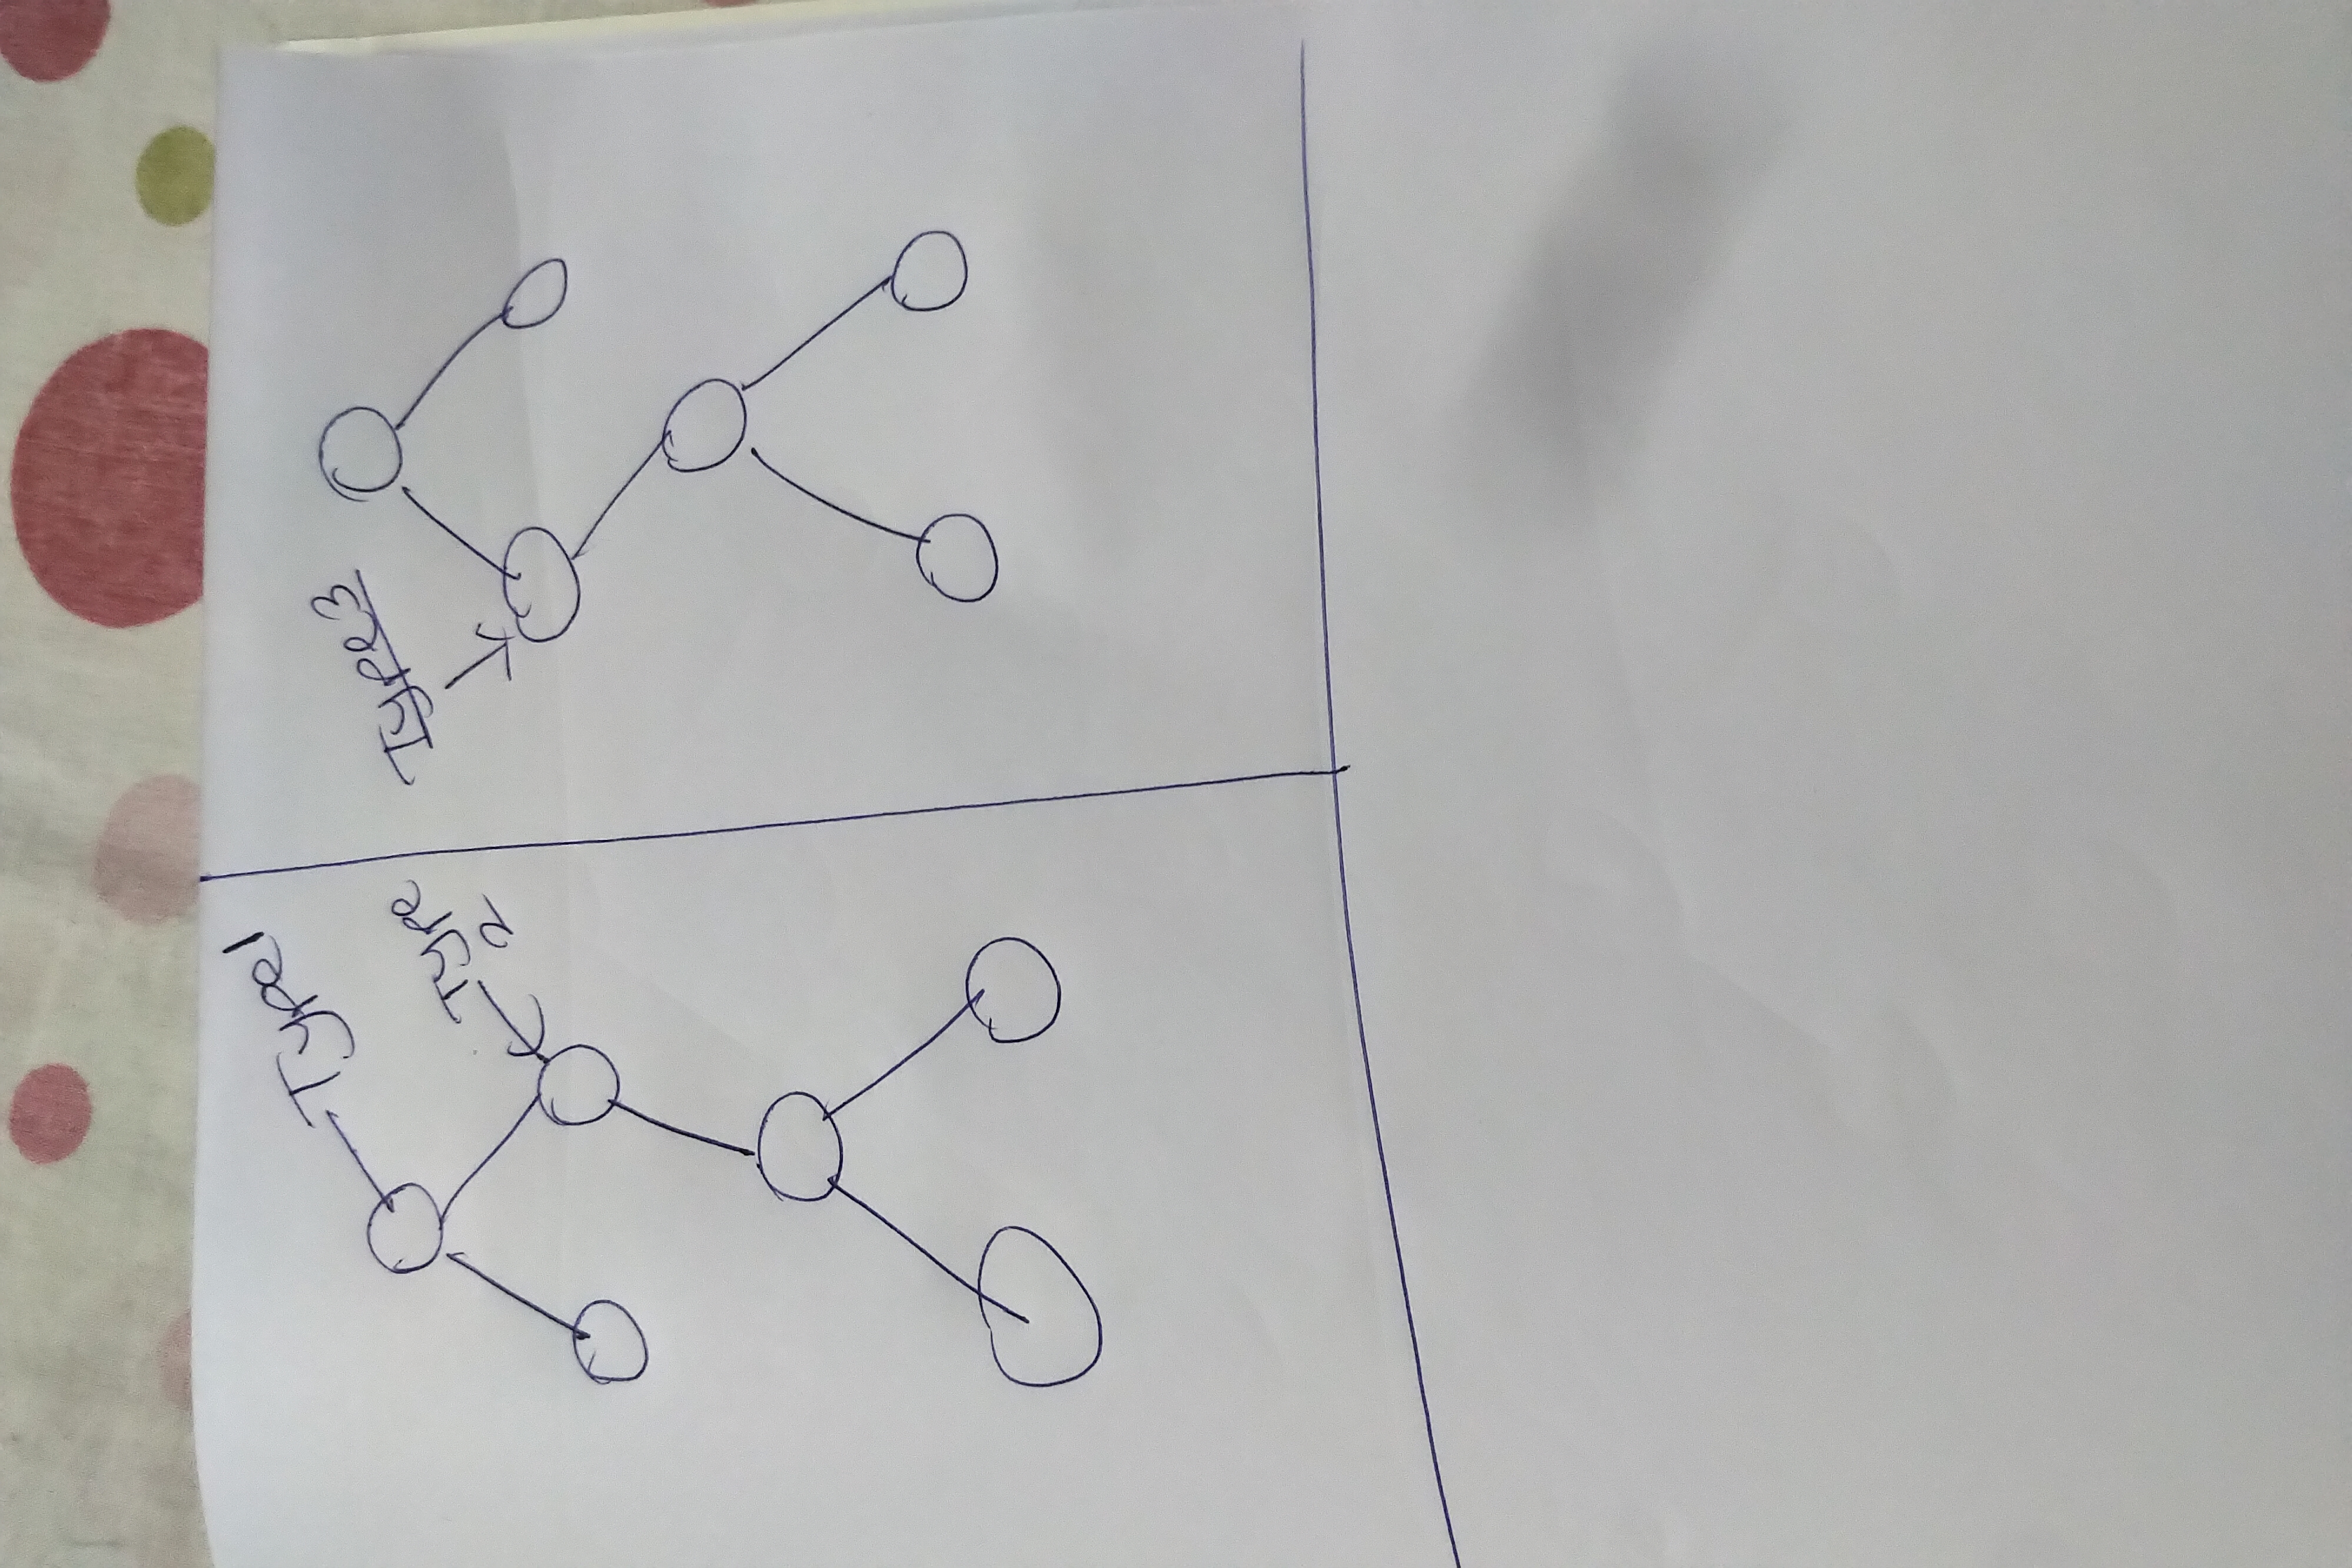 Type1
Type
2
Type3